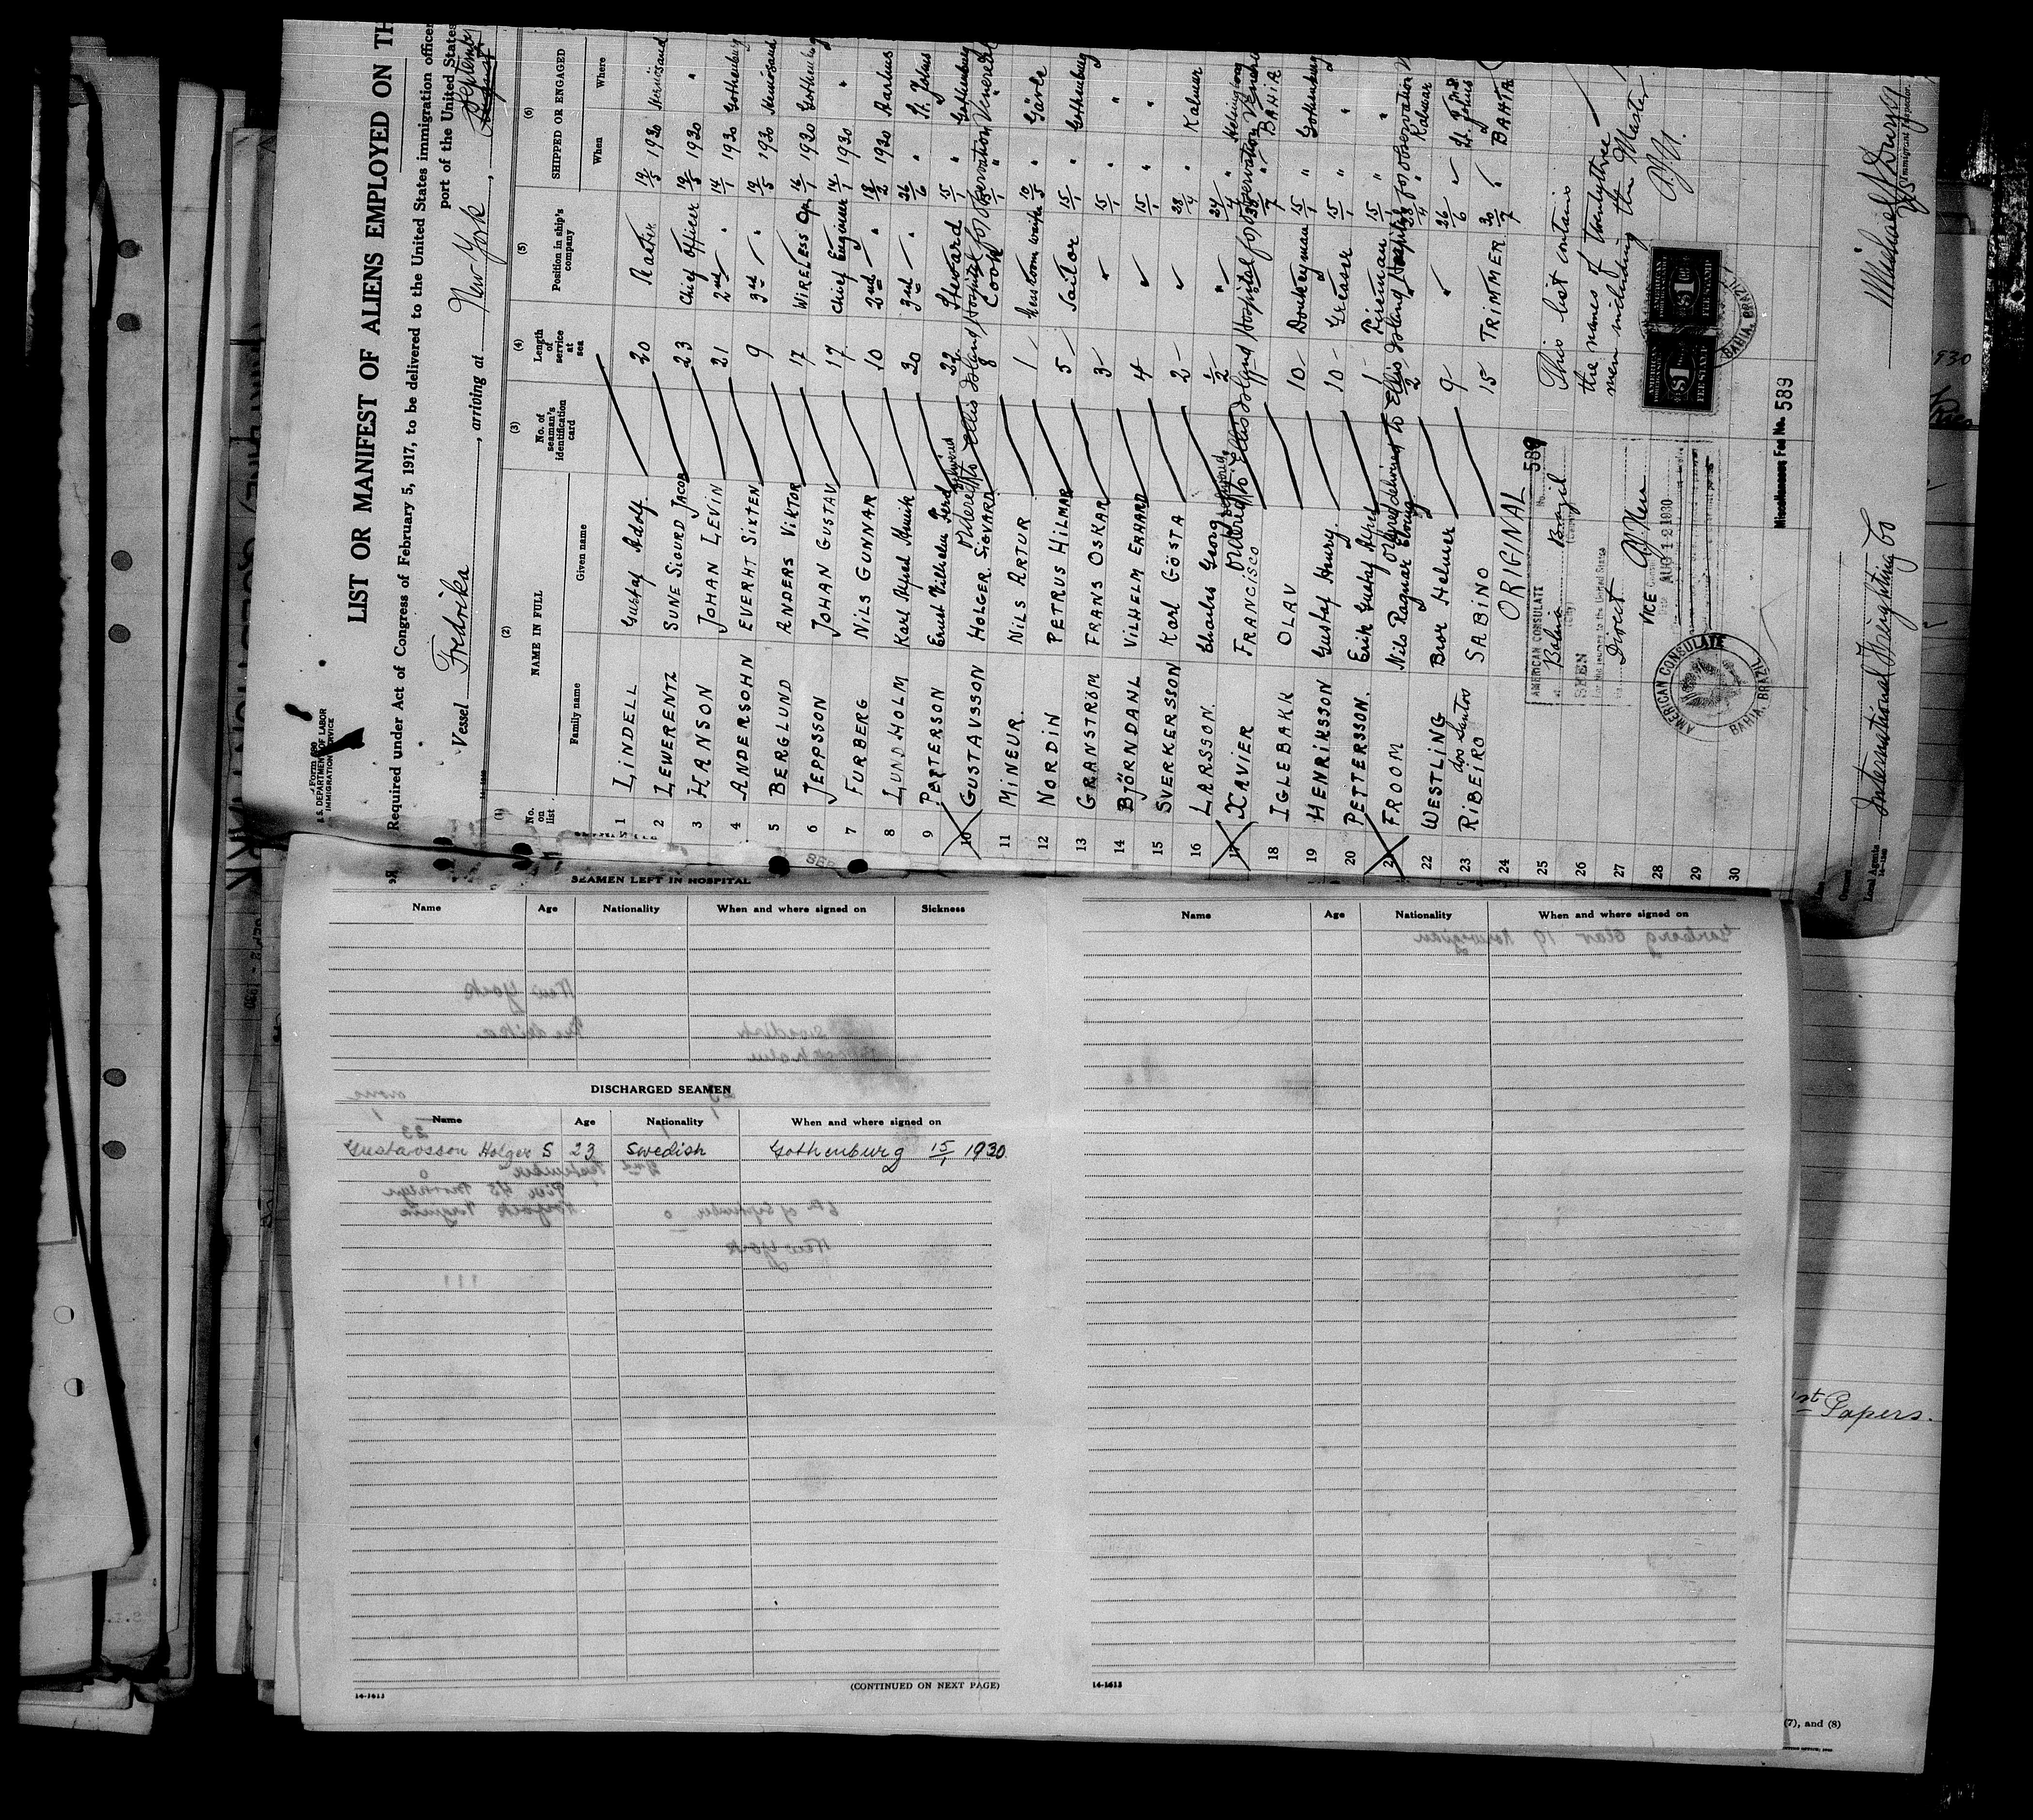 Form 690
U. S. DEPARTMENT OF LABOR
IMMIGRATION SERVICE
LIST OR MANIFEST OF ALIENS EMPLOYED ON TH
Required under Act of Congress of February 5, 1917, to be delivered to the United States immigration officer
port of the United States
Vessel Fredrika, arriving at New York, September
(1) (2) (3) (4) (5) (6)
No. on list NAME IN FULL No. of seaman's identification card Length of service at sea Position in ship's company SHIPPED OR ENGAGED
Family name Given name When Where
1 LINDELL Gustaf Adolf 20 Master 19/5 1920 Hernösand
2 LEWERENTZ SUNE SIGURD JACOB 23 Chief Officer 19/5 1930 "
3 HANSON JOHAN LEVIN 21 2nd " 14/1 1930 Gothenburg
4 ANDERSOHN EVERHT SIXTEN 9 3rd " 19/5 1930 Hernösand
5 BERGLUND ANDERS VIKTOR 17 WIRELESS Opr. 14/1 1930 Gothenburg
6 JEPPSSON JOHAN GUSTAV 17 Chief Engineer 14/1 1930 "
7 FURBERG NILS GUNNAR 10 2nd " 18/2 1930 Aarhus
8 LUNDHOLM Karl Alfred Henrik 20 3rd " 26/6 " St. Johns
9 PETTERSON Ernst Vilhelm Ferd. 22 Steward 15/1 " Gothenburg
Ordered delivered to Ellis Island Hospital for observation Venereal
10 GUSTAVSSON HOLGER SIGVARD 8 Cook 15/1 "
11 MINEUR NILS ARTUR 1 Messroom waiter 10/5 " Gävle
12 NORDIN PETRUS HILMAR 5 Sailor 15/1 " Gothenburg
13 GRANSTRÖM FRANS OSKAR 3 " 15/1 " "
14 BJÖRNDAHL VILHELM ERHARD 4 " 15/1 " "
15 SVERKERSSON Karl GÖSTA 2 " 28/4 " Kalmar
16 LARSSON Charles Georg 1/2 " 24/4 " Helsingborg
Ordered delivered to Ellis Island Hospital for observation Venereal
17 XAVIER FRANCISCO 30/7 " BAHIA
18 IGLEBAKK OLAV 10 Donkeyman 15/1 " Gothenburg
19 HENRIKSSON Gustaf Henry 10 Greaser 15/1 " "
20 PETTERSSON Erik Gustaf Alfred 1 Fireman 15/1 " "
Ordered delivered to Ellis Island Hospital for observation V
21 FROOM Nils Ragnar Elving 2 28/4 " Kalmar
22 WESTLING Bror Helmer 9 " 26/6 " St. Johns
23 dos Santos RIBEIRO SABINO 15 TRIMMER 30/7 " BAHIA
24 ORIGINAL
25
26
27
28
29
30
This list contains
the names of twentythree
men including the Master
AMERICAN CONSULATE
No. 589
at Bahia Brazil
(City) (Country)
SEEN
For the journey to the United States
Direct
VICE Consul
Date AUG 12 1930
AMERICAN CONSULATE
BAHIA, BRAZIL
AMERICAN FOREIGN SERVICE $1 FEE STAMP
AMERICAN FOREIGN SERVICE $1 FEE STAMP
BAHIA, BRAZIL
Miscellaneous Fee No. 589
Owners
Local Agents International Freighting Co
Immigrant Inspector.
SEAMEN LEFT IN HOSPITAL
Name Age Nationality When and where signed on Sickness
DISCHARGED SEAMEN
Name Age Nationality When and where signed on
Gustavsson Holger S 23 Swedish Gothenburg 15/1 1930.
(CONTINUED ON NEXT PAGE)
14-1613
Name Age Nationality When and where signed on
14-1613
930
1st Papers.
(7), and (8)